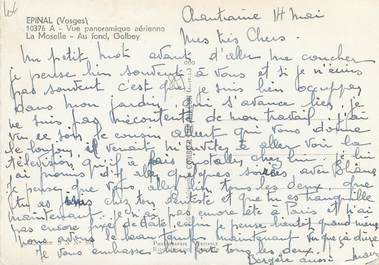 EPINAL (Vosges)
10376 A - Vue panoramique aérienne
La Moselle - Au fond, Golbey
Chantraine 14 Mai
Mes très Chers.
Un petit mot avant d'aller me coucher
je pense bien souvent à vous et si je n'écris
pas souvent c'est que je suis bien occupée
dans mon jardin, qui s'avance bien, je
ne suis pas mécontente de mon travail, j'ai
vu ce soir le cousin Albert qui vous donne
le bonjour, il venait m'inviter à aller voir la
télévision qu'il a fait installer chez lui je lui
ai promis d'y aller quelques soirées, avec
je pense que vous allez bien tous les deux, que
tu as chez ton dentiste et que tu es tranquille
maintenant. je n'ai pas encore été à Paris et n'ai
pas encore fixé de date, car je pense bientôt quand même
nous avons le beau temps maintenant que ça dure
Je vous embrasse bien fort tous les deux.
aussi